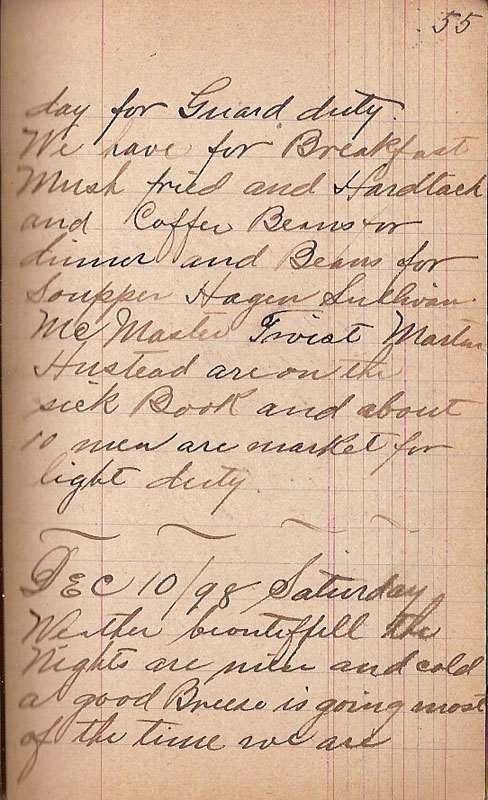 55
day for Guard duty.
We have for Breakfast
Mush fried and Hardtack
and Coffee Beans for
dinner and Beans for
Soupper Hagen Sullivan.
Mc Master Twist Martin
Hustead are on the
sick Book and about
10 men are market for
light duty
DEC 10/98 Saturday
Weather beoutiffell the
Nights are nice and cold
a good Breeze is going most
of the time we are